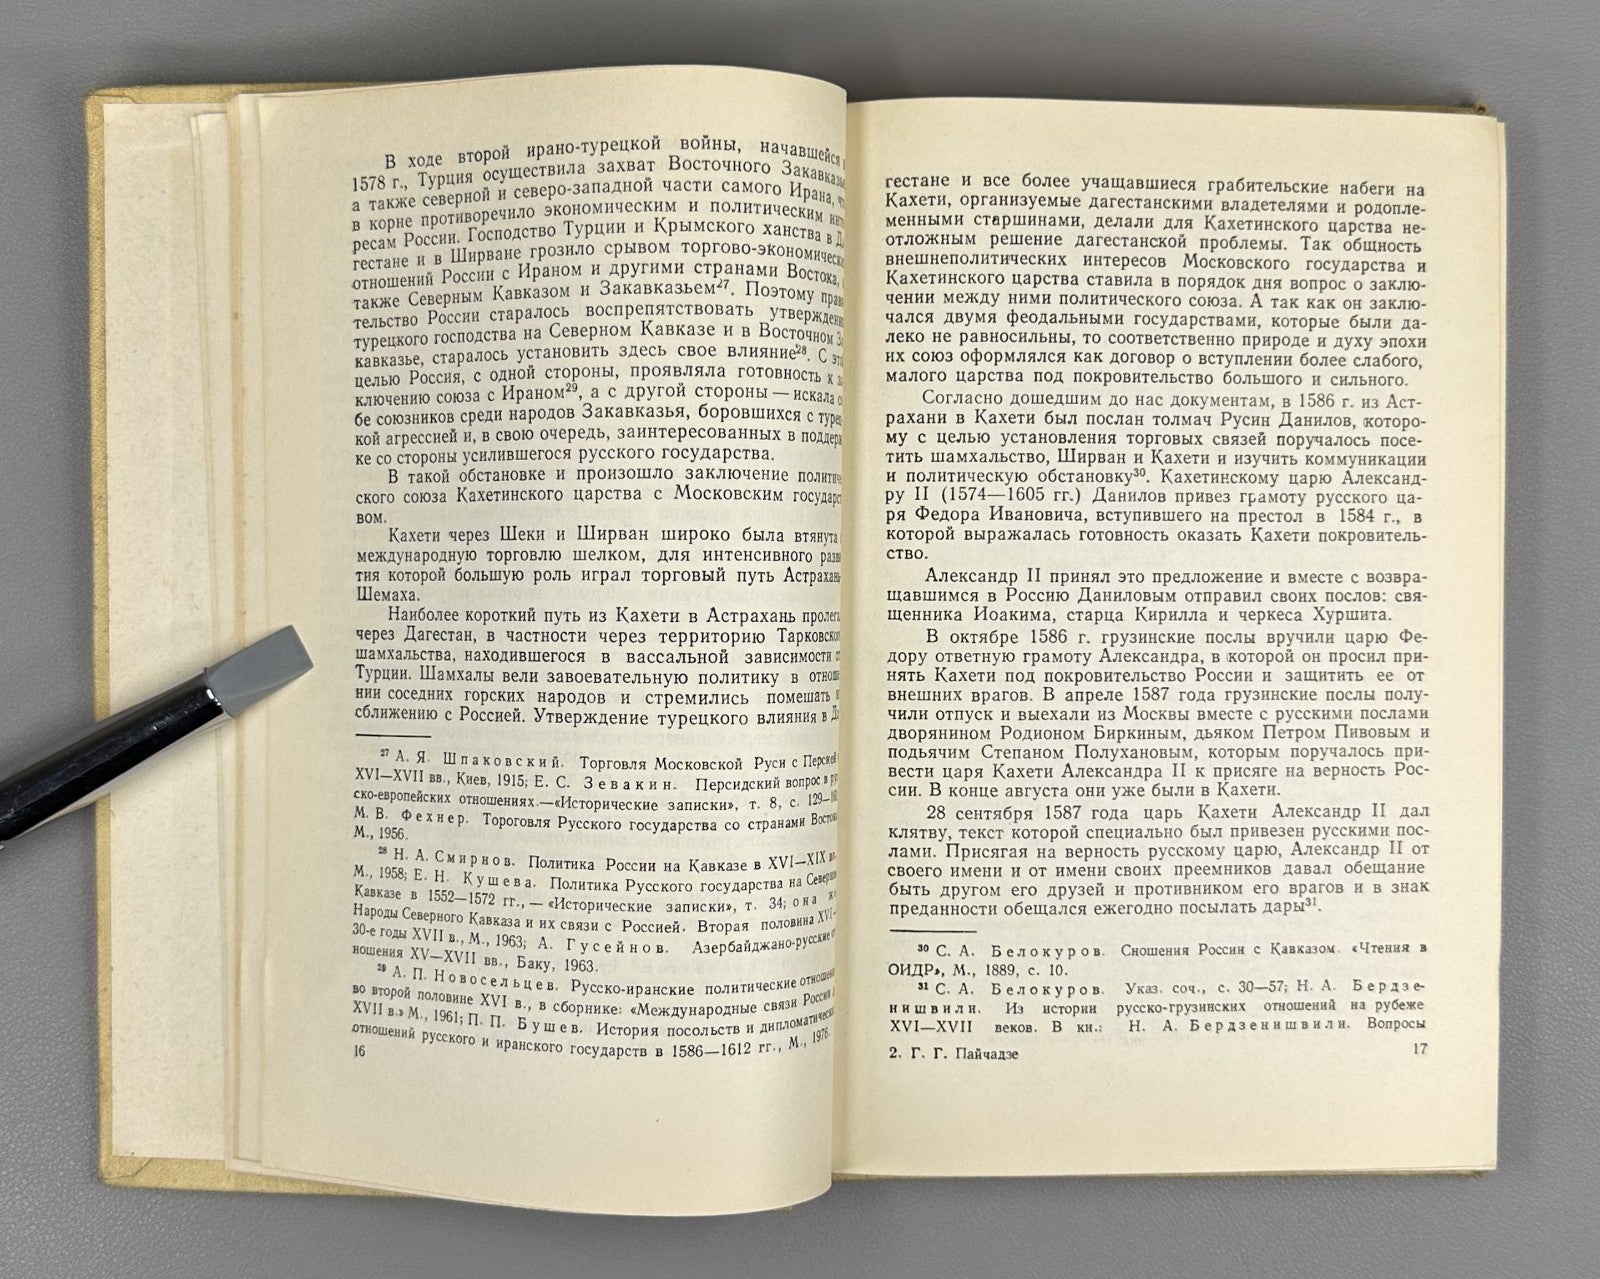 В ходе второй ирано-турецкой войны, начавшейся
1578 г., Турция осуществила захват Восточного Закавказь
а также северной и северо-западной части самого Ирана,
в корне противоречило экономическим и политическим инт
ресам России. Господство Турции и Крымского ханства в Д
гестане и в Ширване грозило срывом торгово-экономически
отношений России с Ираном и другими странами Востока,
также Северным Кавказом и Закавказьем²⁷. Поэтому прав
тельство России старалось воспрепятствовать утверждени
турецкого господства на Северном Кавказе и в Восточном За
кавказье, старалось установить здесь свое влияние²⁸. С э
целью Россия, с одной стороны, проявляла готовность к з
ключению союза с Ираном²⁹, а с другой стороны — искала с
бе союзников среди народов Закавказья, боровшихся с туре
кой агрессией и, в свою очередь, заинтересованных в поддерж
ке со стороны усилившегося русского государства.
В такой обстановке и произошло заключение политич
ского союза Кахетинского царства с Московским государст
вом.
Кахети через Шеки и Ширван широко была втянута
международную торговлю шелком, для интенсивного разви
тия которой большую роль играл торговый путь Астрахань
Шемаха.
Наиболее короткий путь из Кахети в Астрахань пролега
через Дагестан, в частности через территорию Тарковског
шамхальства, находившегося в вассальной зависимости о
Турции. Шамхалы вели завоевательную политику в отнош
нии соседних горских народов и стремились помешать и
сближению с Россией. Утверждение турецкого влияния в Да
²⁷ А. Я. Шпаковский. Торговля Московской Руси с Персией
XVI—XVII вв., Киев, 1915; Е. С. Зевакин. Персидский вопрос в ру
ско-европейских отношениях.—«Исторические записки», т. 8, с. 129—16
М. В. Фехнер. Тороговля Русского государства со странами Востока
М., 1956.
²⁸ Н. А. Смирнов. Политика России на Кавказе в XVI—XIX вв.
М., 1958; Е. Н. Кушева. Политика Русского государства на Северном
Кавказе в 1552—1572 гг., — «Исторические записки», т. 34; она ж
Народы Северного Кавказа и их связи с Россией. Вторая половина XVI—
30-е годы XVII в., М., 1963; А. Гусейнов. Азербайджано-русские от
ношения XV—XVII вв., Баку, 1963.
²⁹ А. П. Новосельцев. Русско-иранские политические отношения
во второй половине XVI в., в сборнике: «Международные связи России в
XVII в.» М., 1961; П. П. Бушев. История посольств и дипломатических
отношений русского и иранского государств в 1586—1612 гг., М., 1976.
16
гестане и все более учащавшиеся грабительские набеги на
Кахети, организуемые дагестанскими владетелями и родопле-
менными старшинами, делали для Кахетинского царства не-
отложным решение дагестанской проблемы. Так общность
внешнеполитических интересов Московского государства и
Кахетинского царства ставила в порядок дня вопрос о заклю-
чении между ними политического союза. А так как он заклю-
чался двумя феодальными государствами, которые были да-
леко не равносильны, то соответственно природе и духу эпохи
их союз оформлялся как договор о вступлении более слабого,
малого царства под покровительство большого и сильного.
Согласно дошедшим до нас документам, в 1586 г. из Аст-
рахани в Кахети был послан толмач Русин Данилов, которо-
му с целью установления торговых связей поручалось посе-
тить шамхальство, Ширван и Кахети и изучить коммуникации
и политическую обстановку³⁰. Кахетинскому царю Александ-
ру II (1574—1605 гг.) Данилов привез грамоту русского ца-
ря Федора Ивановича, вступившего на престол в 1584 г., в
которой выражалась готовность оказать Кахети покровитель-
ство.
Александр II принял это предложение и вместе с возвра-
щавшимся в Россию Даниловым отправил своих послов: свя-
щенника Иоакима, старца Кирилла и черкеса Хуршита.
В октябре 1586 г. грузинские послы вручили царю Фе-
дору ответную грамоту Александра, в которой он просил при-
нять Кахети под покровительство России и защитить ее от
внешних врагов. В апреле 1587 года грузинские послы полу-
чили отпуск и выехали из Москвы вместе с русскими послами
дворянином Родионом Биркиным, дьяком Петром Пивовым и
подьячим Степаном Полухановым, которым поручалось при-
вести царя Кахети Александра II к присяге на верность Рос-
сии. В конце августа они уже были в Кахети.
28 сентября 1587 года царь Кахети Александр II дал
клятву, текст которой специально был привезен русскими пос-
лами. Присягая на верность русскому царю, Александр II от
своего имени и от имени своих преемников давал обещание
быть другом его друзей и противником его врагов и в знак
преданности обещался ежегодно посылать дары³¹.
³⁰ С. А. Белокуров. Сношения России с Кавказом. «Чтения в
ОИДР», М., 1889, с. 10.
³¹ С. А. Белокуров. Указ. соч., с. 30—57; Н. А. Бердзе-
нишвили. Из истории русско-грузинских отношений на рубеже
XVI—XVII веков. В кн.: Н. А. Бердзенишвили. Вопросы
2. Г. Г. Пайчадзе
17